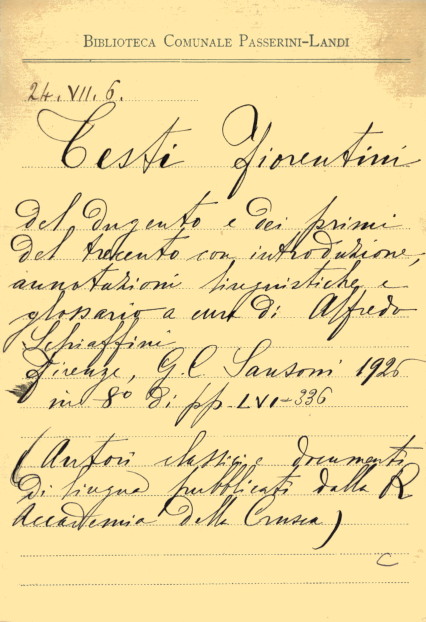 BIBLIOTECA COMUNALE PASSERINI-LANDI
24. VII. 6.
Testi Fiorentini
del dugento e dei primi
del trecento con introduzione,
annotazioni linguistiche e
glossario a cura di Alfredo
Schiaffini
Firenze, G. C. Sansoni 1926
in 8º di pp. LVI-336
(Autori classici e documenti
di lingua pubblicati dalla R
Accademia della Crusca)
C